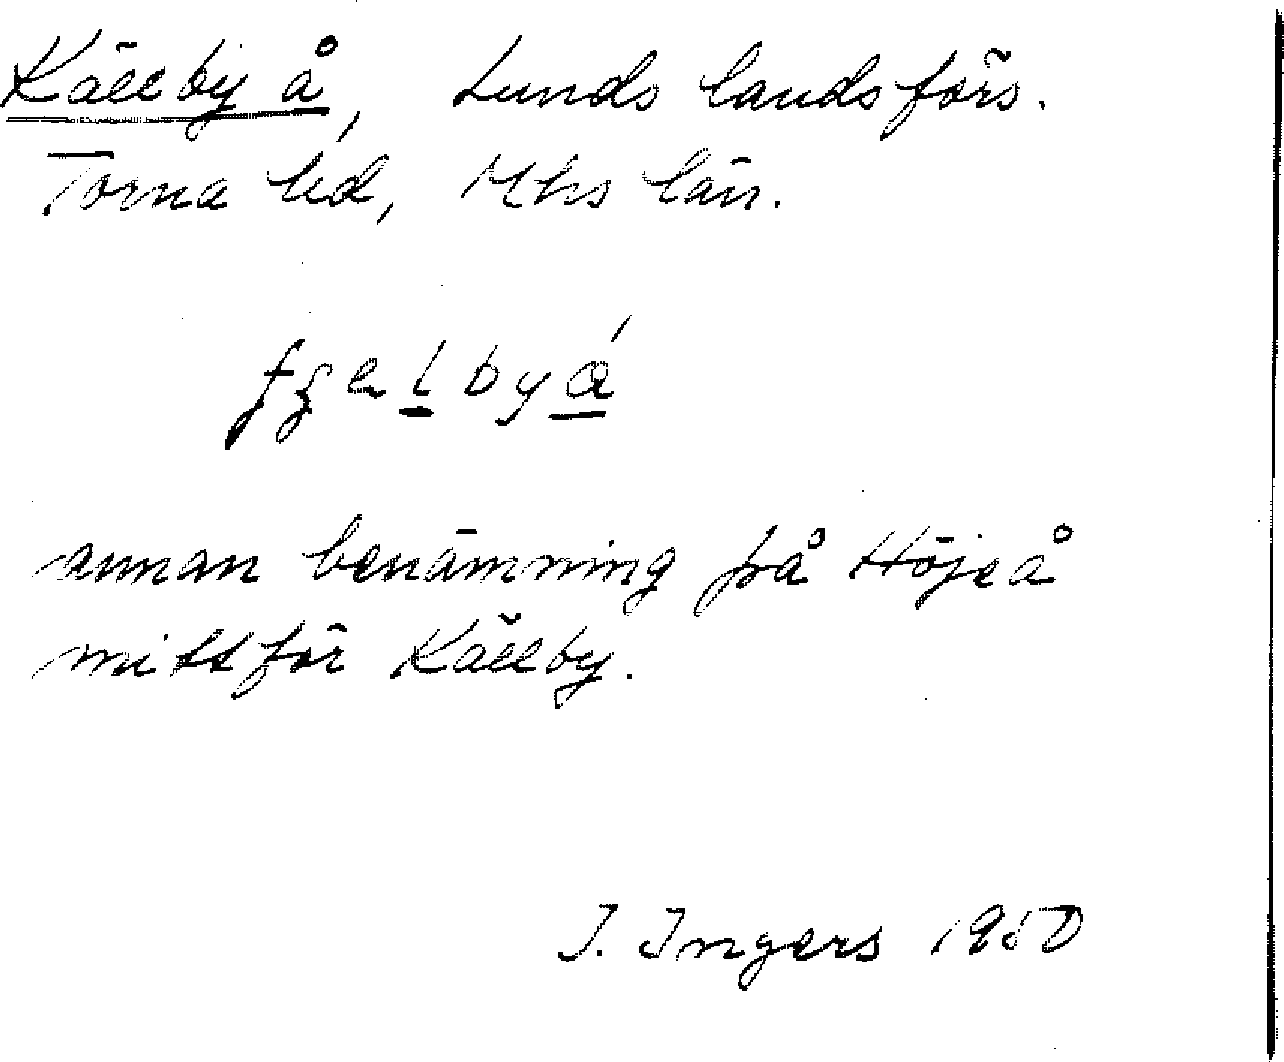 Källby å, Lunds landsförs.
Torna hd, Mhs län.
annan benämning på Höjeå
mittför Källby.
I. Ingers 1950